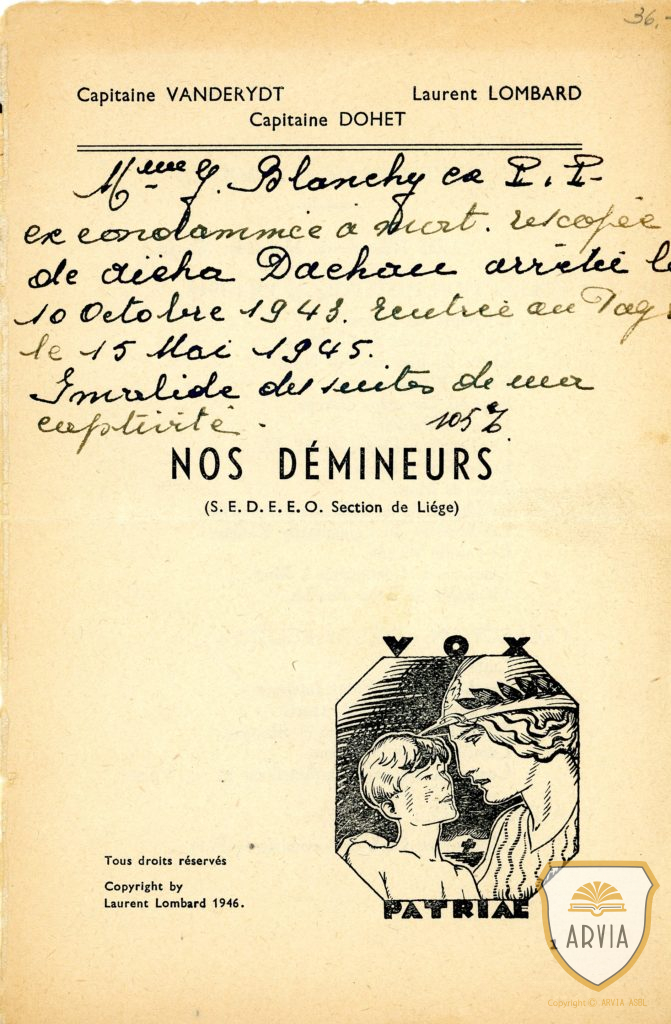 36.-
Capitaine VANDERYDT Laurent LOMBARD
Capitaine DOHET
Mme J. Blanchy ex P. P.
ex condammée à mort. rescapée
de aicha Dachau arrêtée le
10 Octobre 1943. rentrée au Pays
le 15 Mai 1945.
Invalide des suites de ma
captivité. 105 %
NOS DÉMINEURS
(S. E. D. E. E. O. Section de Liége)
VOX
PATRIAE
Tous droits réservés
Copyright by
Laurent Lombard 1946.
1
ARVIA
Copyright © ARVIA ASBL